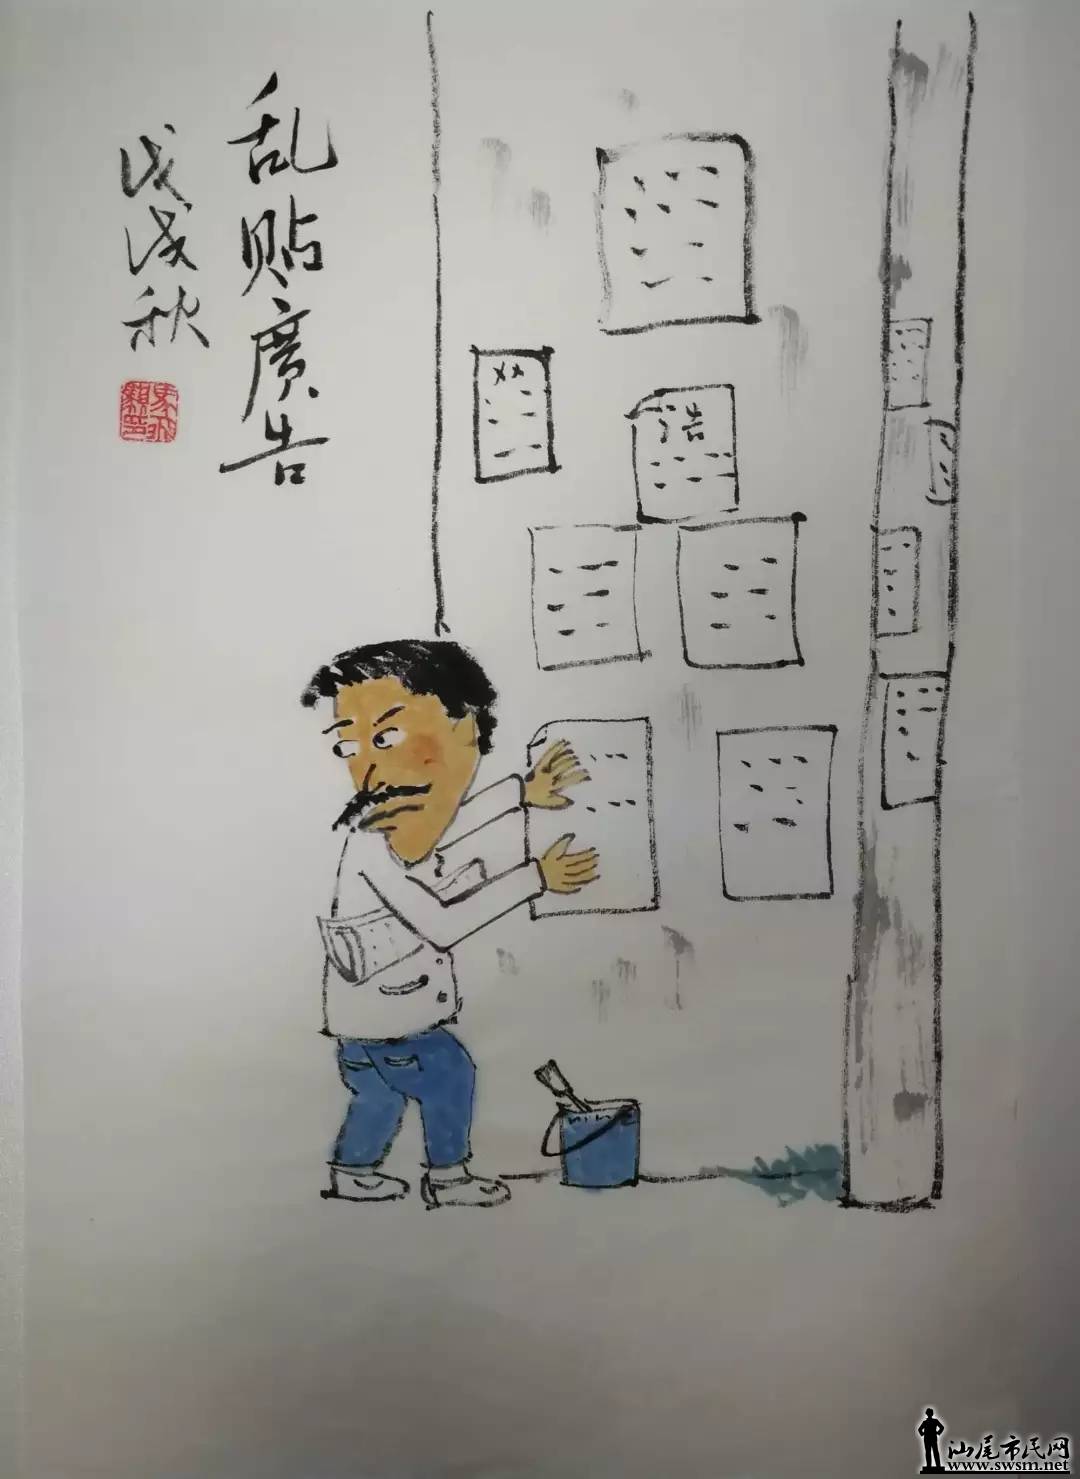 乱贴廣告
戊戌秋
××
告
汕尾市民网
www.swsm.net